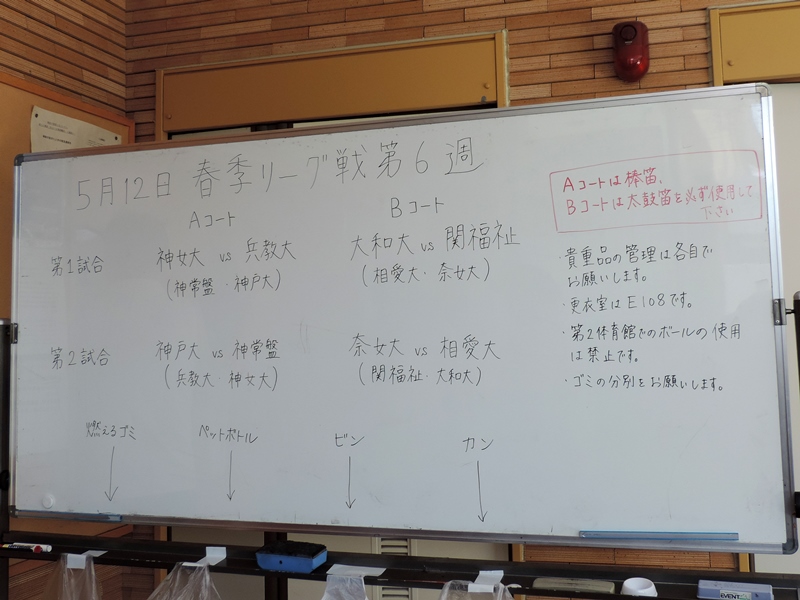 5月12日 春季リーグ戦第6週
Aコート Bコート
第1試合 神女大 vs 兵教大 大和大 vs 関福祉
(神常盤・神戸大) (相愛大・奈女大)
第2試合 神戸大 vs 神常盤 奈女大 vs 相愛大
(兵教大・神女大) (関福祉・大和大)
燃えるゴミ ペットボトル ビン カン
Aコートは棒笛、
Bコートは太鼓笛を必ず使用して
下さい
・貴重品の管理は各自で
お願いします。
・更衣室はE108です。
・第2体育館でのボールの使用
は禁止です。
・ゴミの分別をお願いします。
EVENT